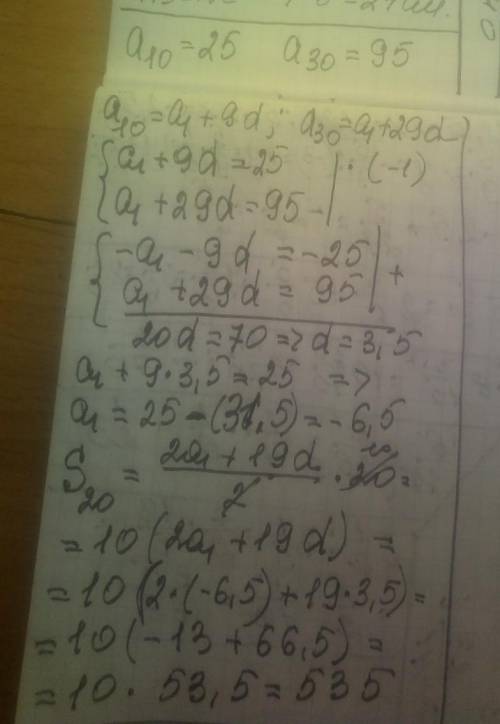 a₁₀ = 25 a₃₀ = 95
a₁₀ = a₁ + 9d; a₃₀ = a₁ + 29d
{ a₁ + 9d = 25 | · (-1)
{ a₁ + 29d = 95 |
{ -a₁ - 9d = -25 | +
{ a₁ + 29d = 95 |
20d = 70 => d = 3,5
a₁ + 9·3,5 = 25 =>
a₁ = 25 - (31,5) = -6,5
S₂₀ = (2a₁ + 19d)/2 · 20 =
= 10 (2a₁ + 19d) =
= 10 (2·(-6,5) + 19·3,5) =
= 10 (-13 + 66,5) =
= 10 · 53,5 = 535